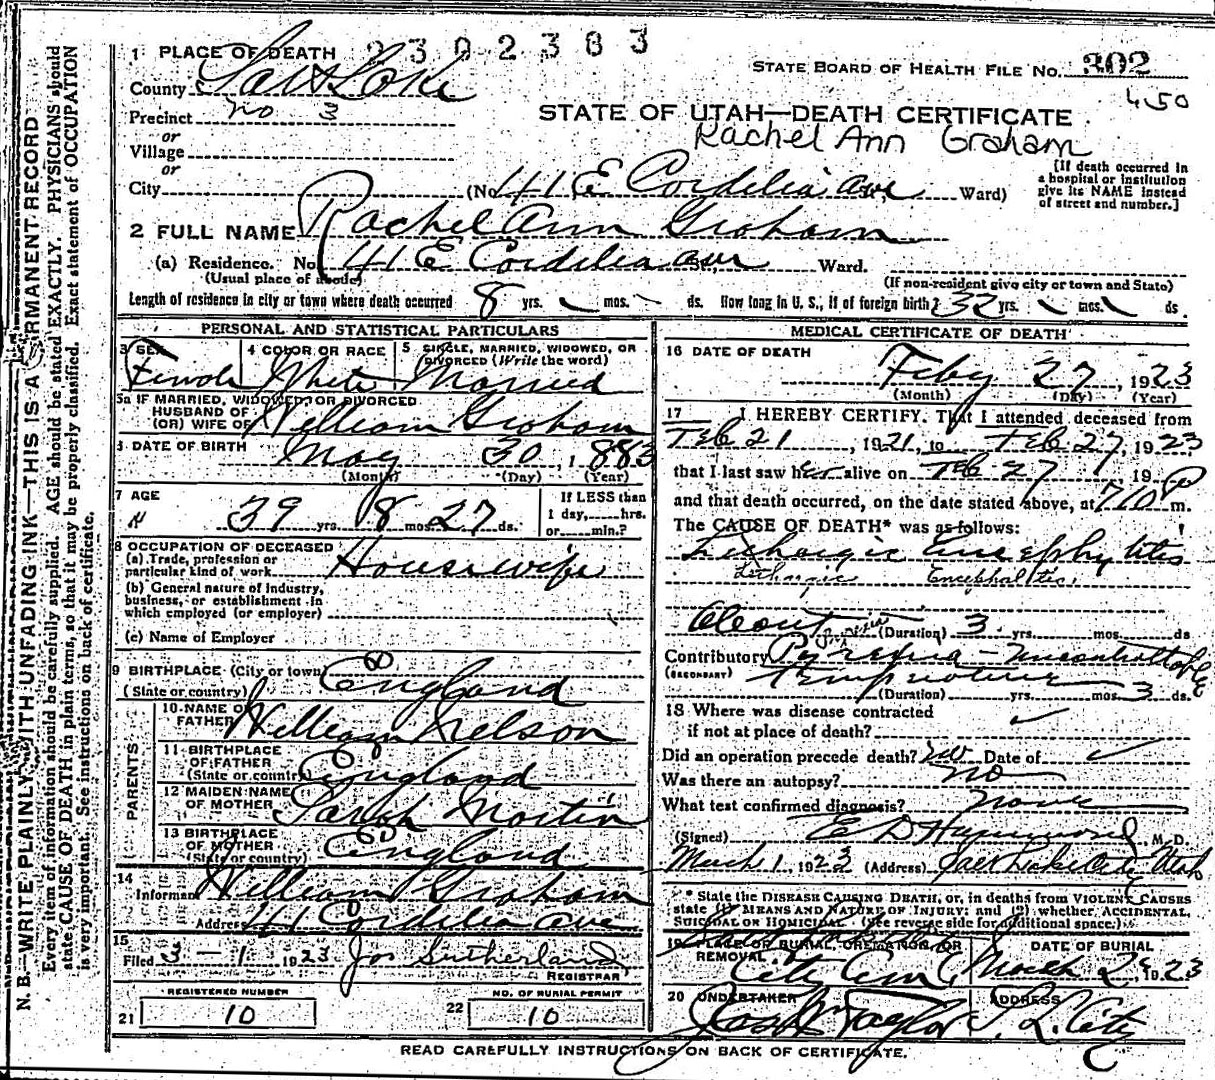 1 PLACE OF DEATH 2302383
STATE BOARD OF HEALTH FILE No. 302
County Salt Lake
450
Precinct no 3
STATE OF UTAH—DEATH CERTIFICATE
or
Rachel Ann Graham
Village
or
City (No. 41 E Cordelia ave Ward)
[If death occurred in
a hospital or institution
give its NAME instead
of street and number.]
2 FULL NAME Rachel Ann Graham
(a) Residence. No. 41 E Cordelia ave Ward.
(Usual place of abode) (If non-resident give city or town and State)
Length of residence in city or town where death occurred 8 yrs. mos. ds. How long in U. S., if of foreign birth? 32 yrs. mos. ds.
PERSONAL AND STATISTICAL PARTICULARS
3 SEX 4 COLOR OR RACE 5 SINGLE, MARRIED, WIDOWED, OR
DIVORCED (Write the word)
Female White Married
5a IF MARRIED, WIDOWED, OR DIVORCED
HUSBAND OF
(OR) WIFE OF William Graham
6 DATE OF BIRTH May 30, 1883
(Month) (Day) (Year)
7 AGE 39 yrs. 8 mos. 27 ds.
If LESS than
1 day, hrs.
or min.?
8 OCCUPATION OF DECEASED
(a) Trade, profession or
particular kind of work Housewife
(b) General nature of industry,
business, or establishment in
which employed (or employer)
(c) Name of Employer
9 BIRTHPLACE (City or town)
(State or country) England
PARENTS
10 NAME OF
FATHER William Nelson
11 BIRTHPLACE
OF FATHER
(State or country) England
12 MAIDEN NAME
OF MOTHER Sarah Martin
13 BIRTHPLACE
OF MOTHER
(State or country) England
14
Informant William Graham
Address 41 Cordelia ave
15
Filed 3-1 1923 Jos Sutherland
REGISTRAR
REGISTERED NUMBER
21 10
NO. OF BURIAL PERMIT
22 10
MEDICAL CERTIFICATE OF DEATH
16 DATE OF DEATH
Feby 27, 1923
(Month) (Day) (Year)
17 I HEREBY CERTIFY, That I attended deceased from
Feb 21, 1921, to Feb 27, 1923
that I last saw her alive on Feb 27 19
and that death occurred, on the date stated above, at 710 P m.
The CAUSE OF DEATH* was as follows:
Lethargic Encephylitis
Lethargic Encephalitis
About (Duration) 3 yrs. mos. ds
Contributory Pyrexia - uncontrollable
(SECONDARY) temperature
(Duration) yrs. mos. 3 ds.
18 Where was disease contracted
if not at place of death?
Did an operation precede death? no Date of
Was there an autopsy? no
What test confirmed diagnosis? none
(Signed) E D Hammond, M. D.
March 1, 1923 (Address) Salt Lake City Utah
* State the DISEASE CAUSING DEATH, or, in deaths from VIOLENT CAUSES
state (1) MEANS AND NATURE OF INJURY; and (2) whether ACCIDENTAL,
SUICIDAL OR HOMICIDAL. (See reverse side for additional space.)
19 PLACE OF BURIAL, CREMATION, OR
REMOVAL
City Cem
DATE OF BURIAL
March 2, 1923
20 UNDERTAKER ADDRESS
Jos Wm Taylor S. L. City
READ CAREFULLY INSTRUCTIONS ON BACK OF CERTIFICATE.
N. B.—WRITE PLAINLY WITH UNFADING INK—THIS IS A PERMANENT RECORD
Every item of information should be carefully supplied. AGE should be stated EXACTLY. PHYSICIANS should
state CAUSE OF DEATH in plain terms, so that it may be properly classified. Exact statement of OCCUPATION
is very important. See instructions on back of certificate.